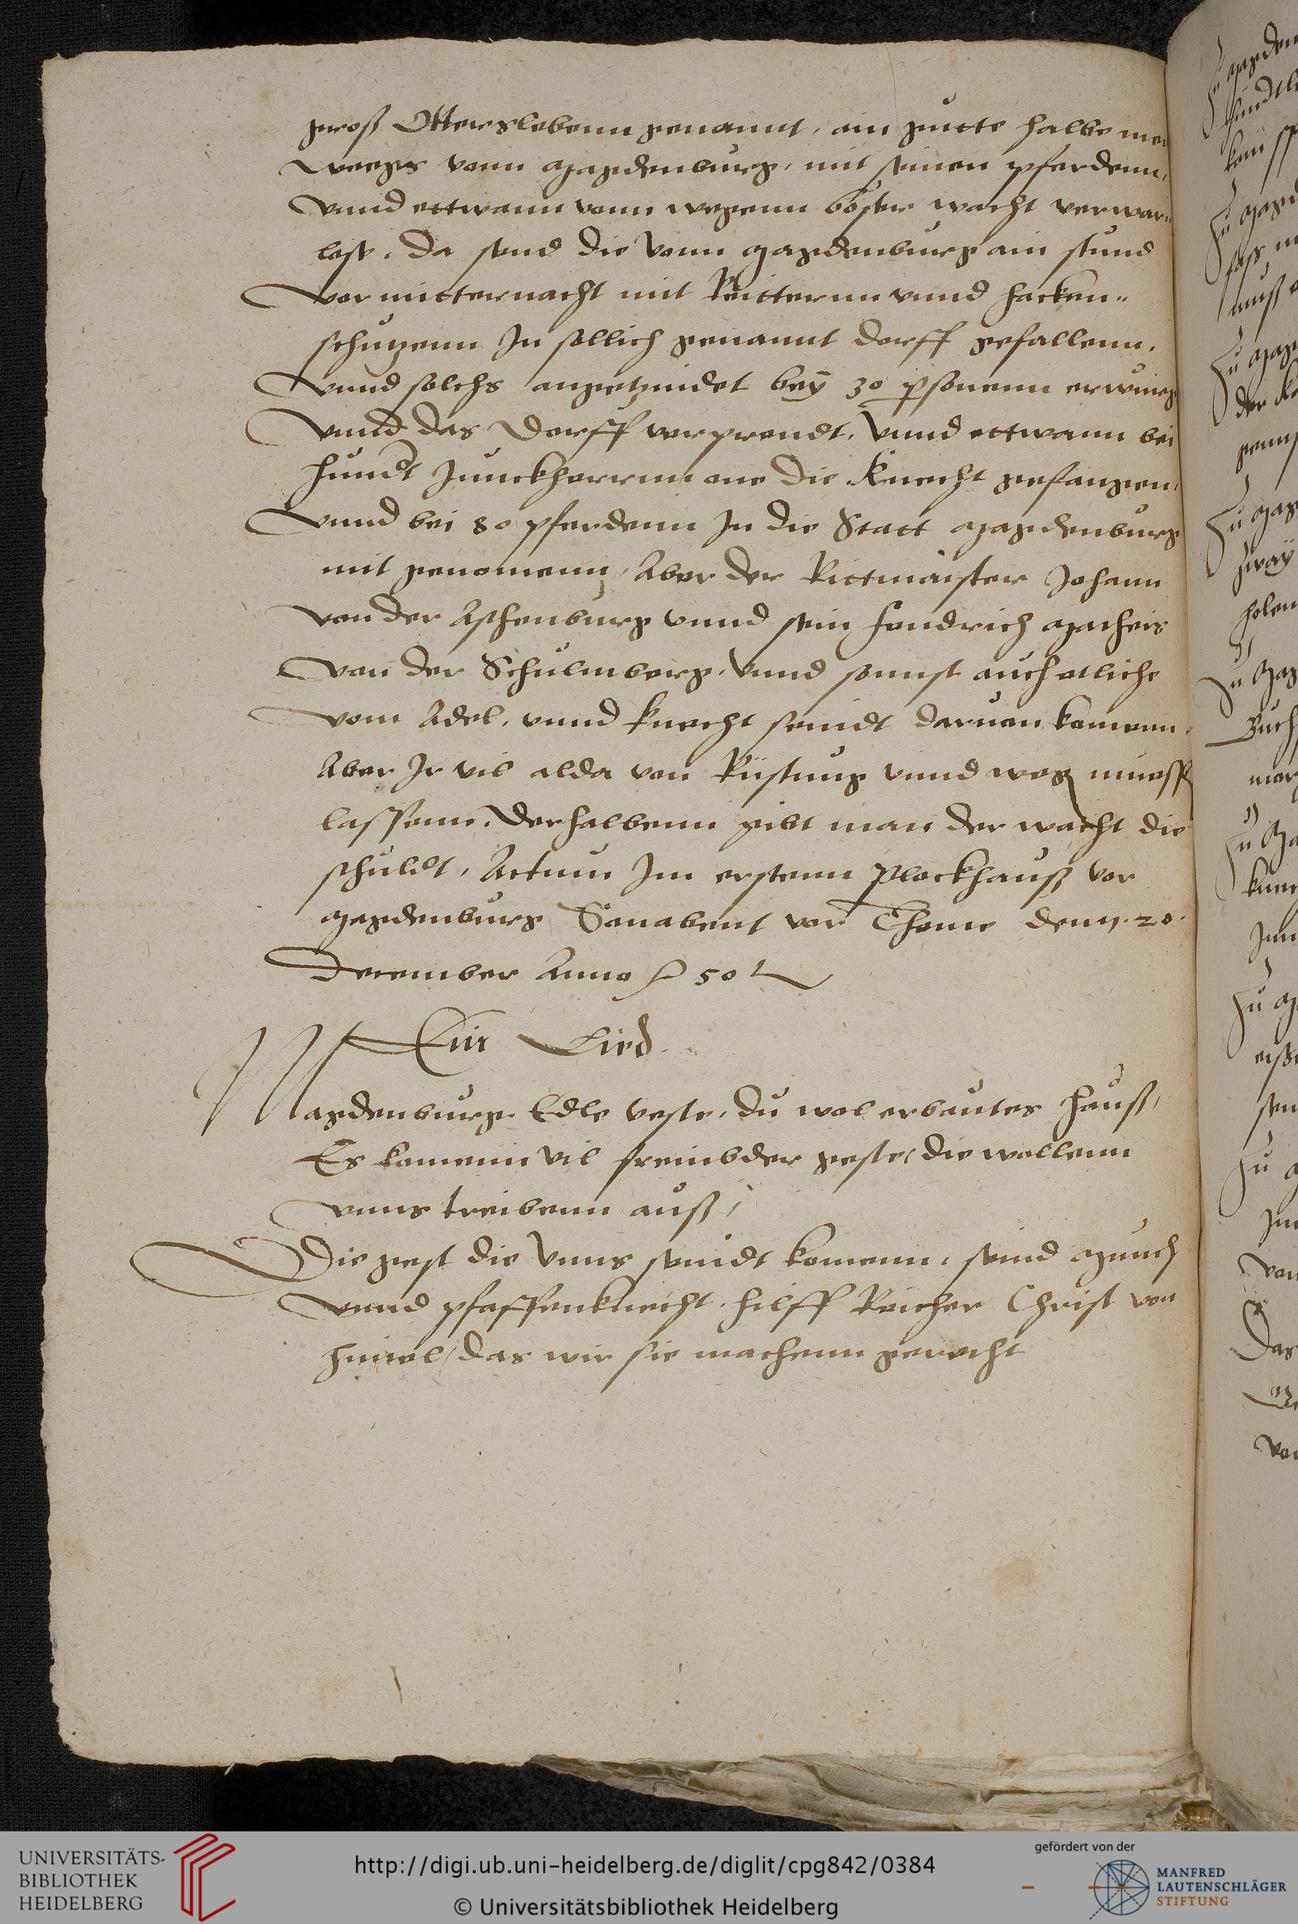 groß Ottersslebenn genannt, ain gutte halbe
weegs vonn Magdenburg, mit seinen pferdenn,
vnnd ettwann vonn wegenn böser wacht
lost, da send die vonn Magdenburg ain stund
vor mitternacht mit Reitternn vnnd hacken-
schutzenn In sollich genannt dorff gefallenn,
vnnd solchs angetzindet bey 30 personenn erwürg
vnnd das Dorff verprendt, Vnnd ettwann bei
hundt Junckherrnn one die Knecht gefangen,
Vnnd bei 80 pferdenn In die Statt Magdenburg
mit genomenn, Aber der Rittmaister Johann
von der Aschenburg vnnd sein fendrich Matheis
von der Schulmberg, vnnd sonnst auch etliche
vom Adel, vnnd knecht seindt daruon komenn,
Aber Ir vil alda von Rüstung vnnd weg
lassenn, Derhalbenn gibt man der wacht die
schuldt, Actum Im erstenn Plockhauß vor
Magdenburg Sonabent vor Thome denn 20.
December Anno 50
Ein Lied.
Magdenburg Edle veste, du wol erbautes hauß,
Es komenn vil frembder geste, die wollenn
vnns treibenn auß,
Die gest die Vnns seindt komenn, seind Munch
vnnd pfaffenknecht, hilff Reicher Christ von
himel, das wir sie machenn gerecht
UNIVERSITÄTS-
BIBLIOTHEK
HEIDELBERG
http://digi.ub.uni-heidelberg.de/diglit/cpg842/0384
© Universitätsbibliothek Heidelberg
gefördert von der
MANFRED
LAUTENSCHLÄGER
STIFTUNG